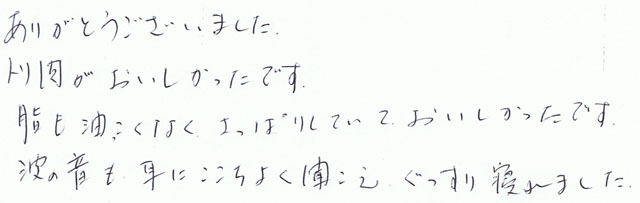 ありがとうございました.
トリ肉がおいしかったです.
脂も油こくなく、さっぱりしていて、おいしかったです.
波の音も耳にここちよく聞こえ、ぐっすり寝れました.